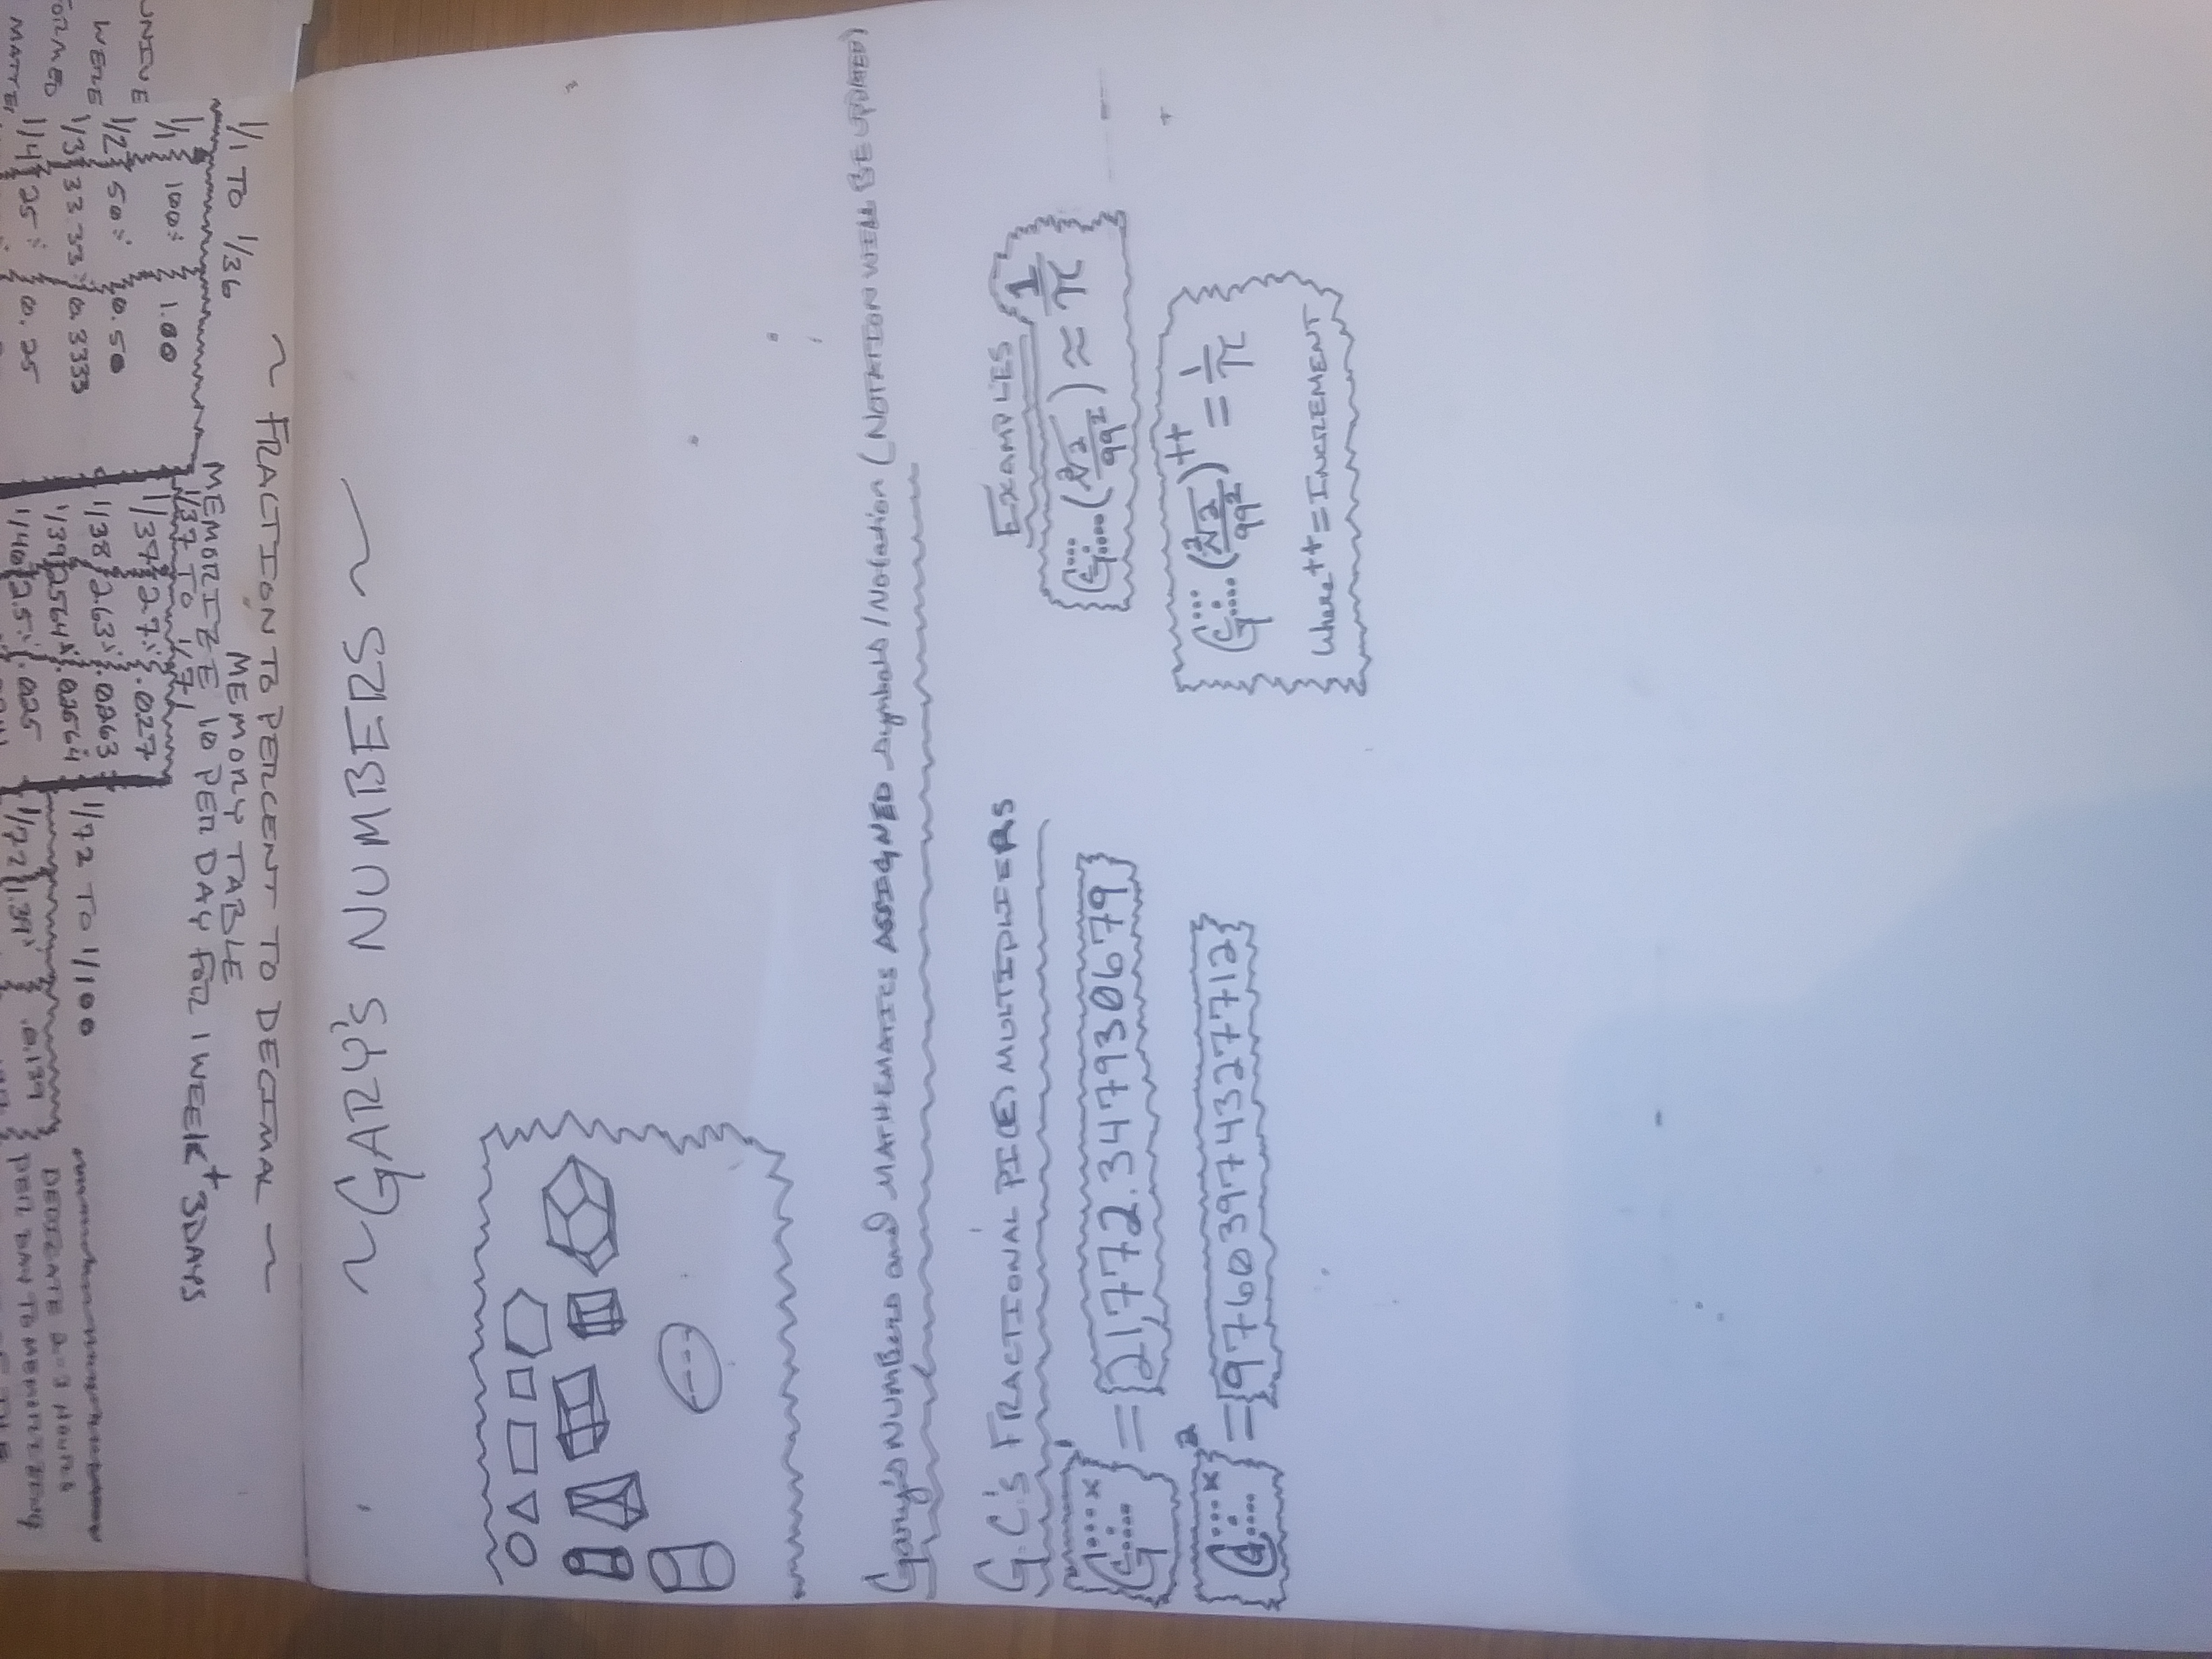 ~ FRACTION TO PERCENT TO DECIMAL ~
MEMORY TABLE
MEMORIZE 10 PER DAY FOR 1 WEEK + 3 DAYS
1/1 TO 1/36
1/1 100% 1.00
1/2 50% 0.50
1/3 33.33% 0.3333
1/4 25% 0.25
1/37 TO 1/71
1/37 2.7% .027
1/38 2.63% .0263
1/39 2.564% .02564
1/40 2.5% .025
1/72 TO 1/100
1/72 1.39% 0.139
DEDICATE 2-3 HOURS
PER DAY TO MEMORIZING
WERE
~GARY'S NUMBERS~
Gary's NUMBERS and MATHEMATICS ASSIGNED Symbols/Notation (NOTATION WILL BE UPDATED)
G.C.'s FRACTIONAL PI(E) MULTIPLIERS
= 21,772.347930679
= 976039743277 12
EXAMPLES
(²√2/99²) ≈ 1/π
(²√2/99²)⁺⁺ = 1/π
Where ++ = INCREMENT